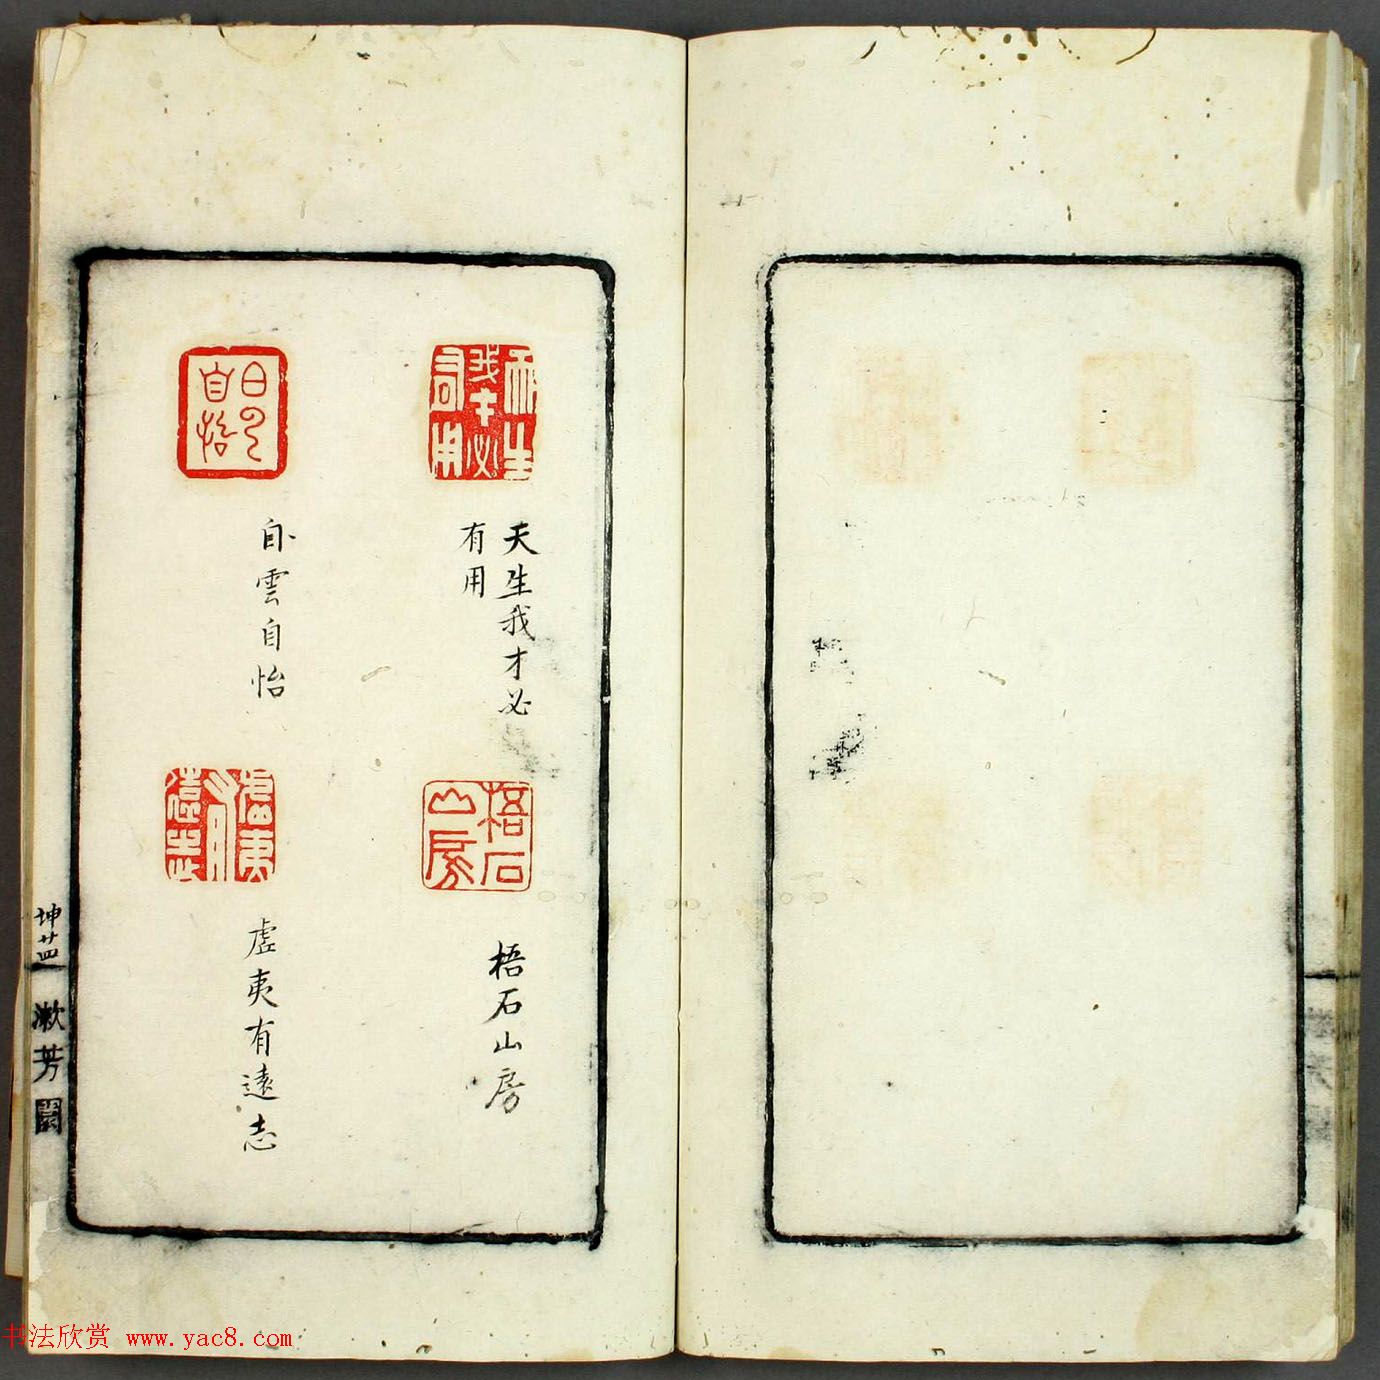 天生我才必
有用
梧石山房
臥雲自怡
虛夷有遠志
坤廿四
漱芳園
书法欣赏 www.yac8.com